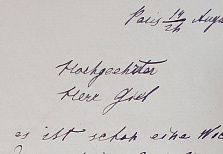 Paris 14/26 Aug
Hochgeehrter
Herr Giel
es ist schon eine Woc